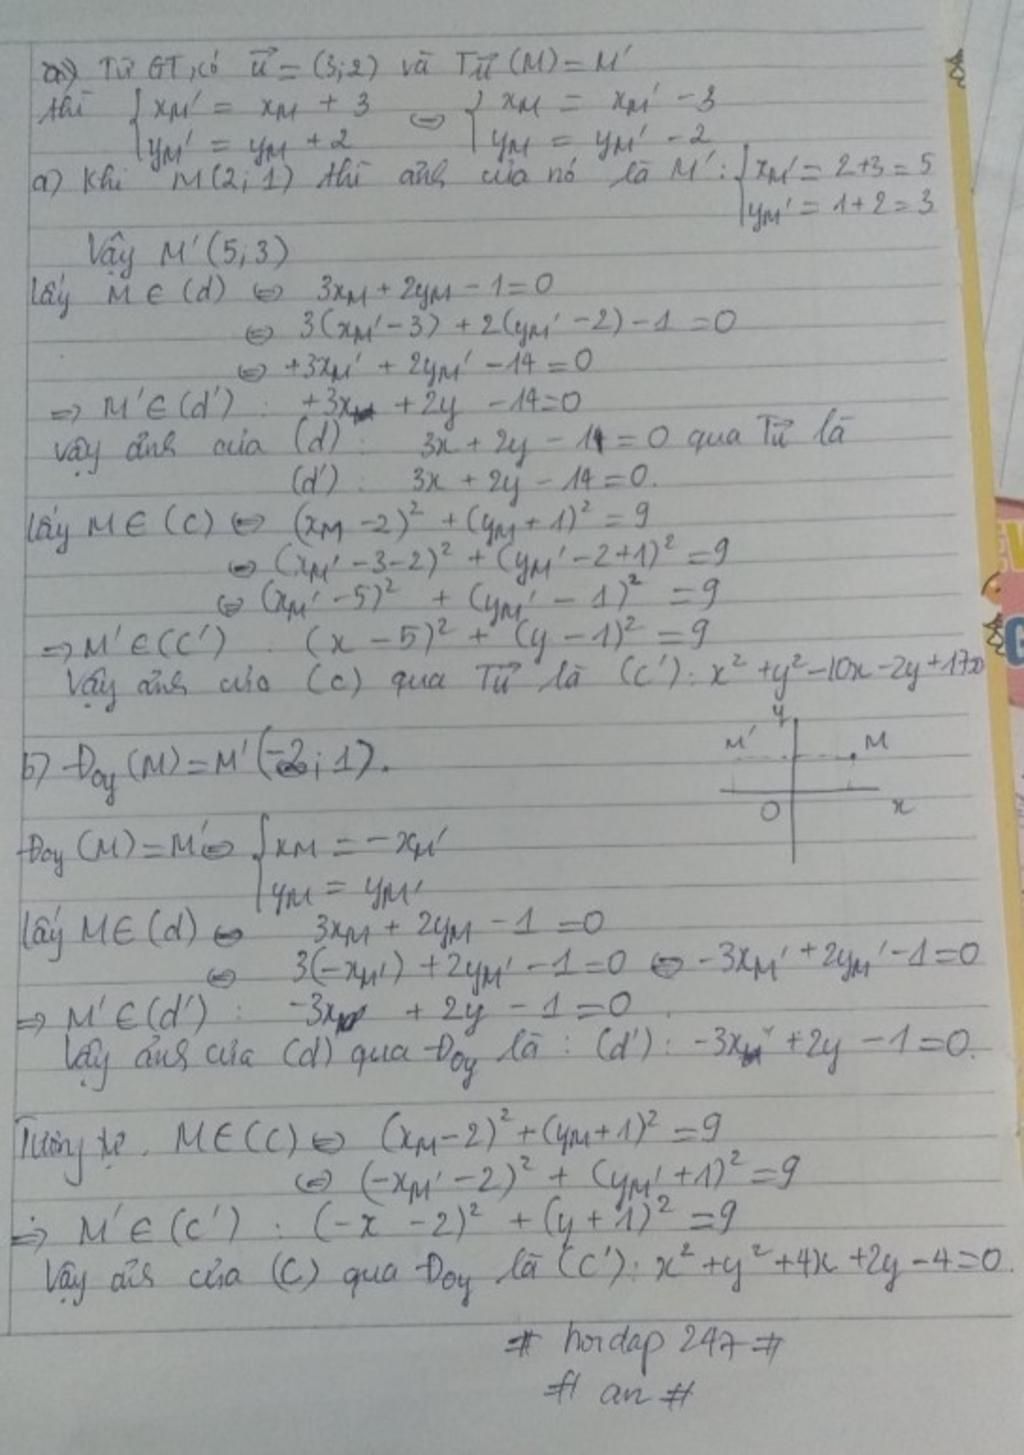 a) Từ GT, có u⃗ = (3;2) và Tu⃗ (M) = M'
thì { xM' = xM + 3 ⇔ { xM = xM' - 3
yM' = yM + 2 yM = yM' - 2
a) Khi M(2;1) thì ảnh của nó là M': { xM' = 2+3 = 5
yM' = 1+2 = 3
Vậy M'(5;3)
Lấy M ∈ (d) ⇔ 3xM + 2yM - 1 = 0
⇔ 3(xM' - 3) + 2(yM' - 2) - 1 = 0
⇔ +3xM' + 2yM' - 14 = 0
⇒ M' ∈ (d') : +3x + 2y - 14 = 0
Vậy ảnh của (d) : 3x + 2y - 1 = 0 qua Tu⃗ là
(d') : 3x + 2y - 14 = 0.
Lấy M ∈ (C) ⇔ (xM - 2)² + (yM + 1)² = 9
⇔ (xM' - 3 - 2)² + (yM' - 2 + 1)² = 9
⇔ (xM' - 5)² + (yM' - 1)² = 9
⇒ M' ∈ (C') : (x - 5)² + (y - 1)² = 9
Vậy ảnh của (C) qua Tu⃗ là (C') : x² + y² - 10x - 2y + 17=0
y
M' M
O x
b) Đoy (M) = M' (-2; 1).
Đoy (M) = M' ⇔ { xM = -xM'
yM = yM'
Lấy M ∈ (d) ⇔ 3xM + 2yM - 1 = 0
⇔ 3(-xM') + 2yM' - 1 = 0 ⇔ -3xM' + 2yM' - 1 = 0
⇒ M' ∈ (d') : -3x + 2y - 1 = 0.
Vậy ảnh của (d) qua Đoy là : (d') : -3x + 2y - 1 = 0.
Tương tự. M ∈ (C) ⇔ (xM - 2)² + (yM + 1)² = 9
⇔ (-xM' - 2)² + (yM' + 1)² = 9
⇒ M' ∈ (C') : (-x - 2)² + (y + 1)² = 9
Vậy ảh của (C) qua Đoy là (C') : x² + y² + 4x + 2y - 4 = 0.
# hoidap 247 #
# an #